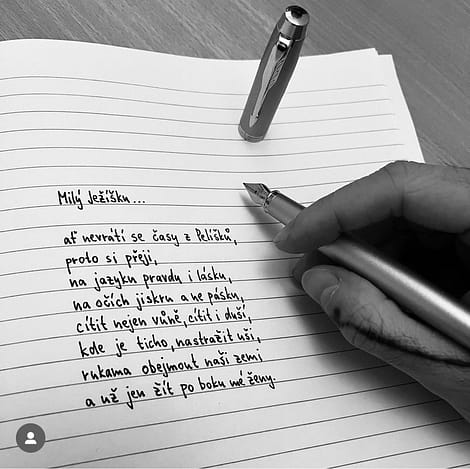 Milý Ježíšku...
ať nevrátí se časy z Pelíšků,
proto si přeji,
na jazyku pravdu i lásku,
na očích jiskru a ne pásku,
cítit nejen vůně, cítit i duši,
kde je ticho, nastražit uši,
rukama obejmout naši zemi
a už jen žít po boku mé ženy.